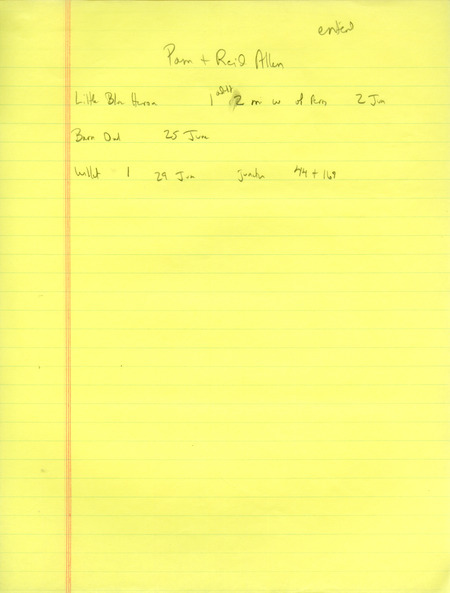 entered
Pam + Reid Allen
Little Blue Heron 1 adult 2 m w of Perry 2 Jun
Barn Owl 25 June
Willet 1 29 Jun junction 44 + 169